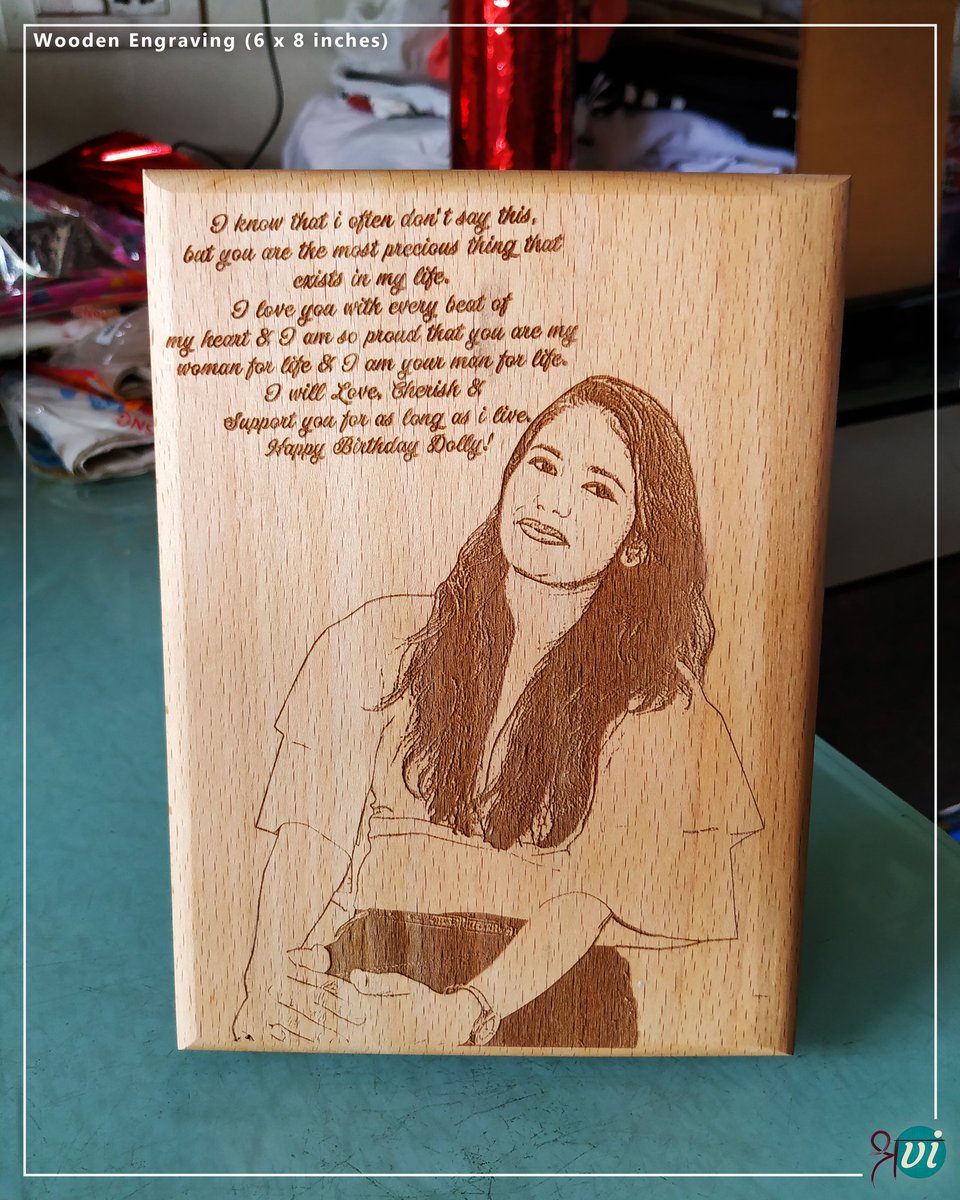 Wooden Engraving (6 x 8 inches)
I know that i often don't say this,
but you are the most precious thing that
exists in my life.
I love you with every beat of
my heart & I am so proud that you are my
woman for life & I am your man for life.
I will Love, Cherish &
Support you for as long as i live.
Happy Birthday Dolly!
श्रvi